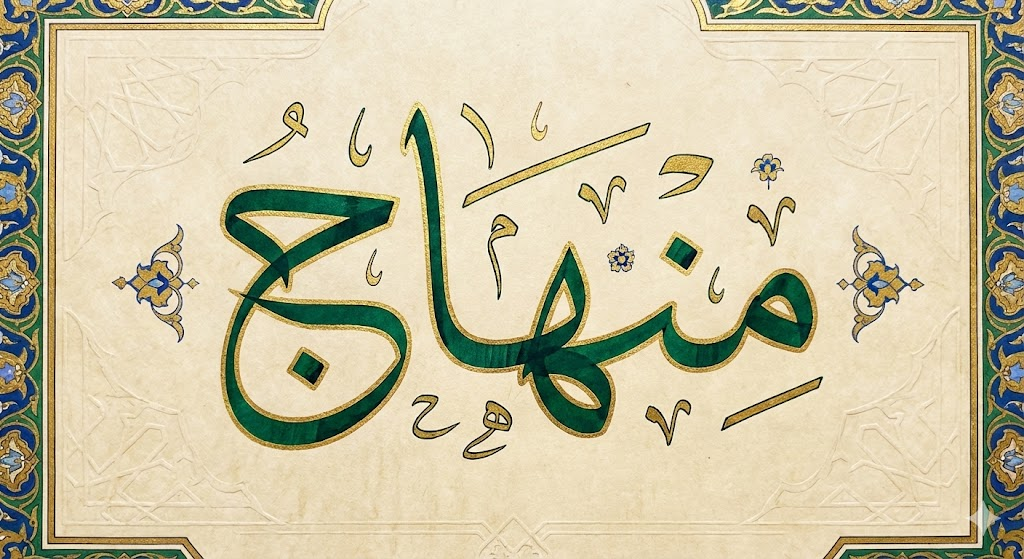 مِنْهَاجُ